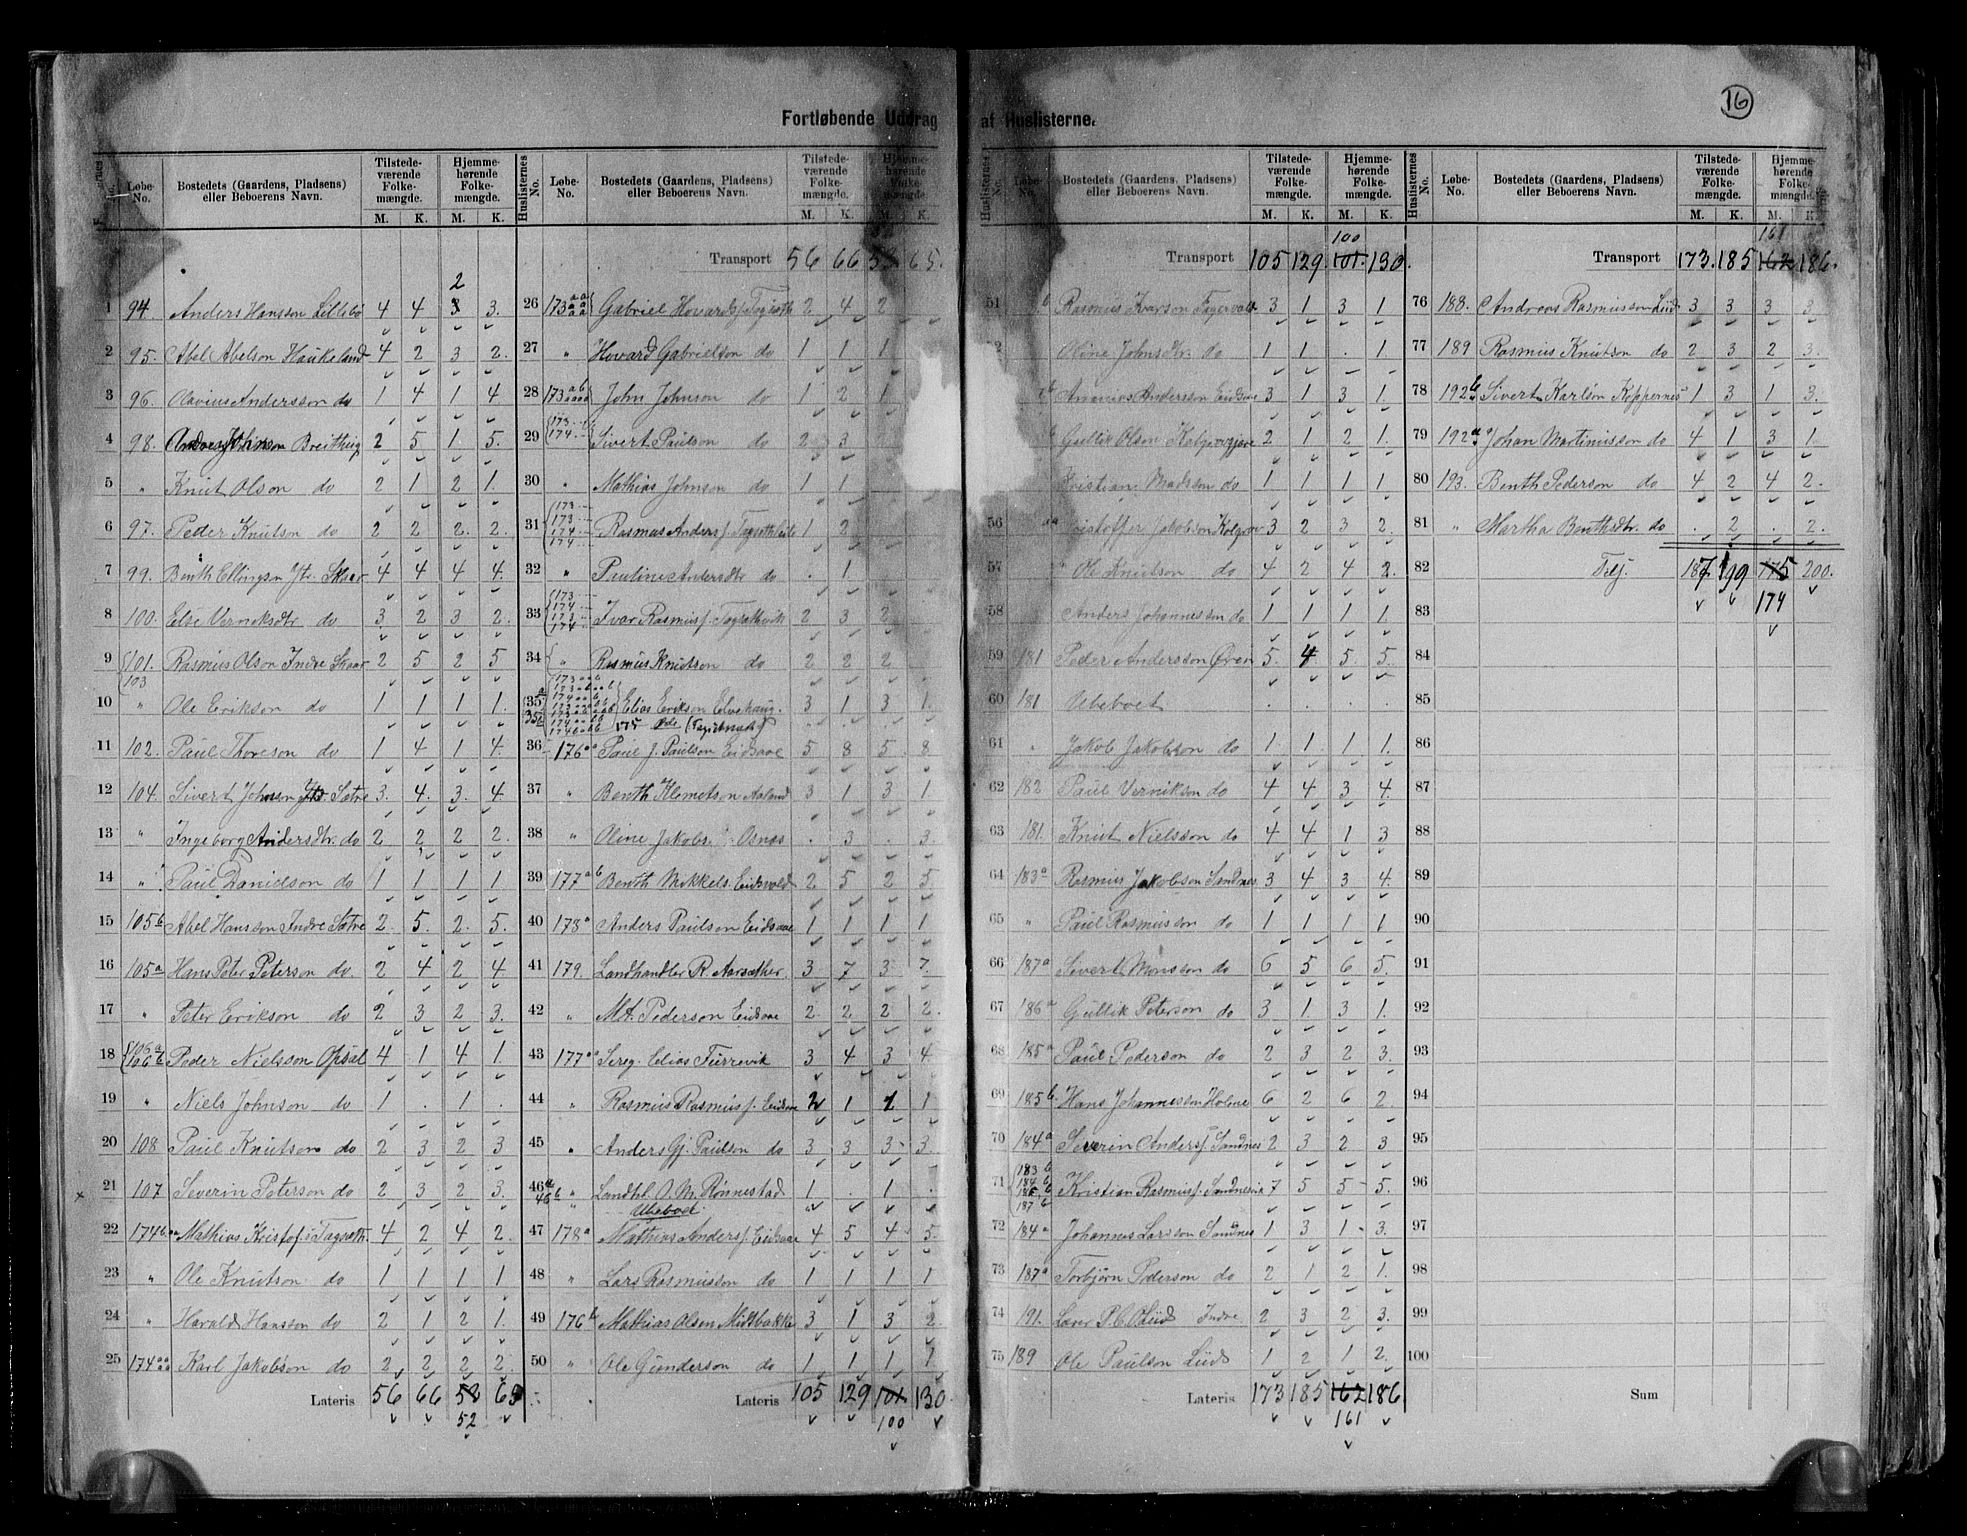 16
Fortløbende Uddrag af Huslisterne.
Løbe-No. Bostedets (Gaardens, Pladsens) eller Beboerens Navn. Tilstede-værende Folke-mængde. M. K. Hjemme-hørende Folke-mængde. M. K.
2
1 94. Anders Hansson Lillebø 4 4 3 3.
2 95. Abel Abelson Haukeland 4 2 3 2.
3 96. Olavius Andersson do 1 4 1 4
4 98. Breithug 2 5 1 5.
5 " Knut Olson do 2 1 2 1.
6 97. Petter Knutson do 2 2 2. 2.
7 99. Benth Ellingsn Ytr. Skaar 4 4 4 4.
8 100. Else Verniksdtr do 3 2 3 2.
9 101. 103 Rasmus Olson Indre Skaar 2 5 2 5
10 " Ole Erikson do 1 1 1 1.
11 102. Paul Thoreson do 1 4 1 4.
12 104. Sivert Johnson Ytr Sætre 3. 4. 3. 4
13 " Ingeborg Andersdtr. do 2 2 2 2.
14 " Paul Danielson do 1 1 1 1
15 105b Abel Hansson Indre Sætre 2. 5. 2. 5.
16 105a Hans Peter Peterson do. 2 4 2 4
17 " Peter Erikson do 2 3 2 3.
18 106a 106b Peder Nielsson Opsal 4 1 4 1.
19 " Niels Johnson do 1 . 1 .
20 108 Paul Knutson do 2 3 2 3
21 107 Severin Peterson do 2 3 2 3.
22 174b Mathias Kristofs: Tagseth. 4 2 4 2.
23 " Ole Knutson do 1 1 1 1
24 " Harald Hansson do 2 1 2 1.
25 174 Karl Jakobson do 2 2 2 2.
Lateris 56 66 65
52
Huslisternes No. Løbe-No. Bostedets (Gaardens, Pladsens) eller Beboerens Navn. Tilstede-værende Folke-mængde. M. K. Hjemme-hørende Folke-mængde. M. K.
Transport 56 66 53 65.
26 173 Gabriel Hovards. 2 4 2
27 " Hovard Gabrielson do 1 1 1
28 173 John Johnson do 1 2 1
29 173 174 Sivert Paulson do 2 3
30 " Mathias Johnson do 1 1
31 173 173 174 174 Rasmus Anders. 1 2
32 " Pauline Andersdtr do . 1
33 173 174 173 174 Ivar Rasmus. 2 3 2
34 " Rasmus Knutson do 2 2 2
35 Elias Erikson Elvehaug. 3 1 3 1.
36 176 Paul J. Paulson Eidsaae 5 8 5. 8
37 " Benth Klemetson Aaland 3 1 3 1
38 " Oline Jakobs. Osnes . 3 . 3.
39 177b Benth Mikkels. Eidsvold 2 5 2 5
40 178a Anders Paulson Eidsaae 1 1 1 1
41 179. Landhandler R. Aarsæther. 3 7 3 7.
42 " Mt. Pederson Eidsaae 2 2 2 2.
43 177 Elias Furrevik 3 4 3 4.
44 " Rasmus Rasmus. Eidsaae 2 1 1
45 " Anders Gj. Paulson do 3 3 3 3.
46a 46b " Landhl. O. M. Rønnestad 1 . 1 .
" Ubeboet
47 178a Mathias Anders. Eidsaae 4 5 4 5.
48 " Lars Rasmusson do 1 1 1 1
49 176b Mathias Olsen Midtbakke 3 1 3 2
50 " Ole Gunderson do 1 1 1 1
Lateris 105 129 101 130.
100
Huslisternes No. Løbe-No. Bostedets (Gaardens, Pladsens) eller Beboerens Navn. Tilstede-værende Folke-mængde. M. K. Hjemme-hørende Folke-mængde. M. K.
100
Transport 105 129. 101. 130.
51 b Rasmus Ivarson Fagervold 3 1 3 1
Oline Johnsdtr. do 1 1 . 1
b Ananias Andersson Eidsaae 3 1 3 1.
Gullik Olson 2 1 2 1.
Kristian Madsson do 1 1 1 1
56 Kristoffer Jakobson 3 2 3 2.
57 " Ole Knutson do 4 2 4 2.
58 Anders Johannesson do 1 1 1 1.
59 181 Peder Andersson Øren 5. 4 5. 5.
60 181 Ubeboet . . . .
61 " Jakob Jakobson do 1 1 1 1.
62 182 Paul Vernikson do 4 4 3 4.
63 181. Knut Nielsson do 4 4 1 3
64 183a Rasmus Jakobson Sandnes 3 4 3 4.
65 " Paul Rasmusson do 1 1 1 1
66 187a Sivert Monsson do 6 5 6 5.
67 186a Gullik Peterson do 3 1 3 1.
68 185a Paul Pederson do 2 3 2 3.
69 185b. Hans Johannesson Holene 6 2 6 2
70 184a Severin Anders. Sandnes 2 3 2 3
71 183b 184b 186b 187b Kristian Rasmus. Sandnesvik 7 5 5 5.
72 184a Johannes Larsson Sandnes 1 3 1 3.
73 187a Torbjørn Pederson do 2 1 2 1.
74 191. Indre 2 3 2 3.
75 189 Ole Paulson Liid 1 2 1 2.
Lateris 173 185 162 186.
161
Huslisternes No. Løbe-No. Bostedets (Gaardens, Pladsens) eller Beboerens Navn. Tilstede-værende Folke-mængde. M. K. Hjemme-hørende Folke-mængde. M. K.
161
Transport 173. 185 162 186.
76 188. Andreas Rasmusson Liid 3 3 3 3.
77 189 Rasmus Knutson do 2 3 2 3.
78 192b Sivert Karlson Koppernes 1 3 1 3.
79 192a Johan Martinusson do 4 1 3 1
80 193. Benth Pederson do 4 2 4 2.
81 " Martha Benthsdtr. do . 2 . 2.
82 Tilj. 187 199 175 200.
83 174
84
85
86
87
88
89
90
91
92
93
94
95
96
97
98
99
100
Sum